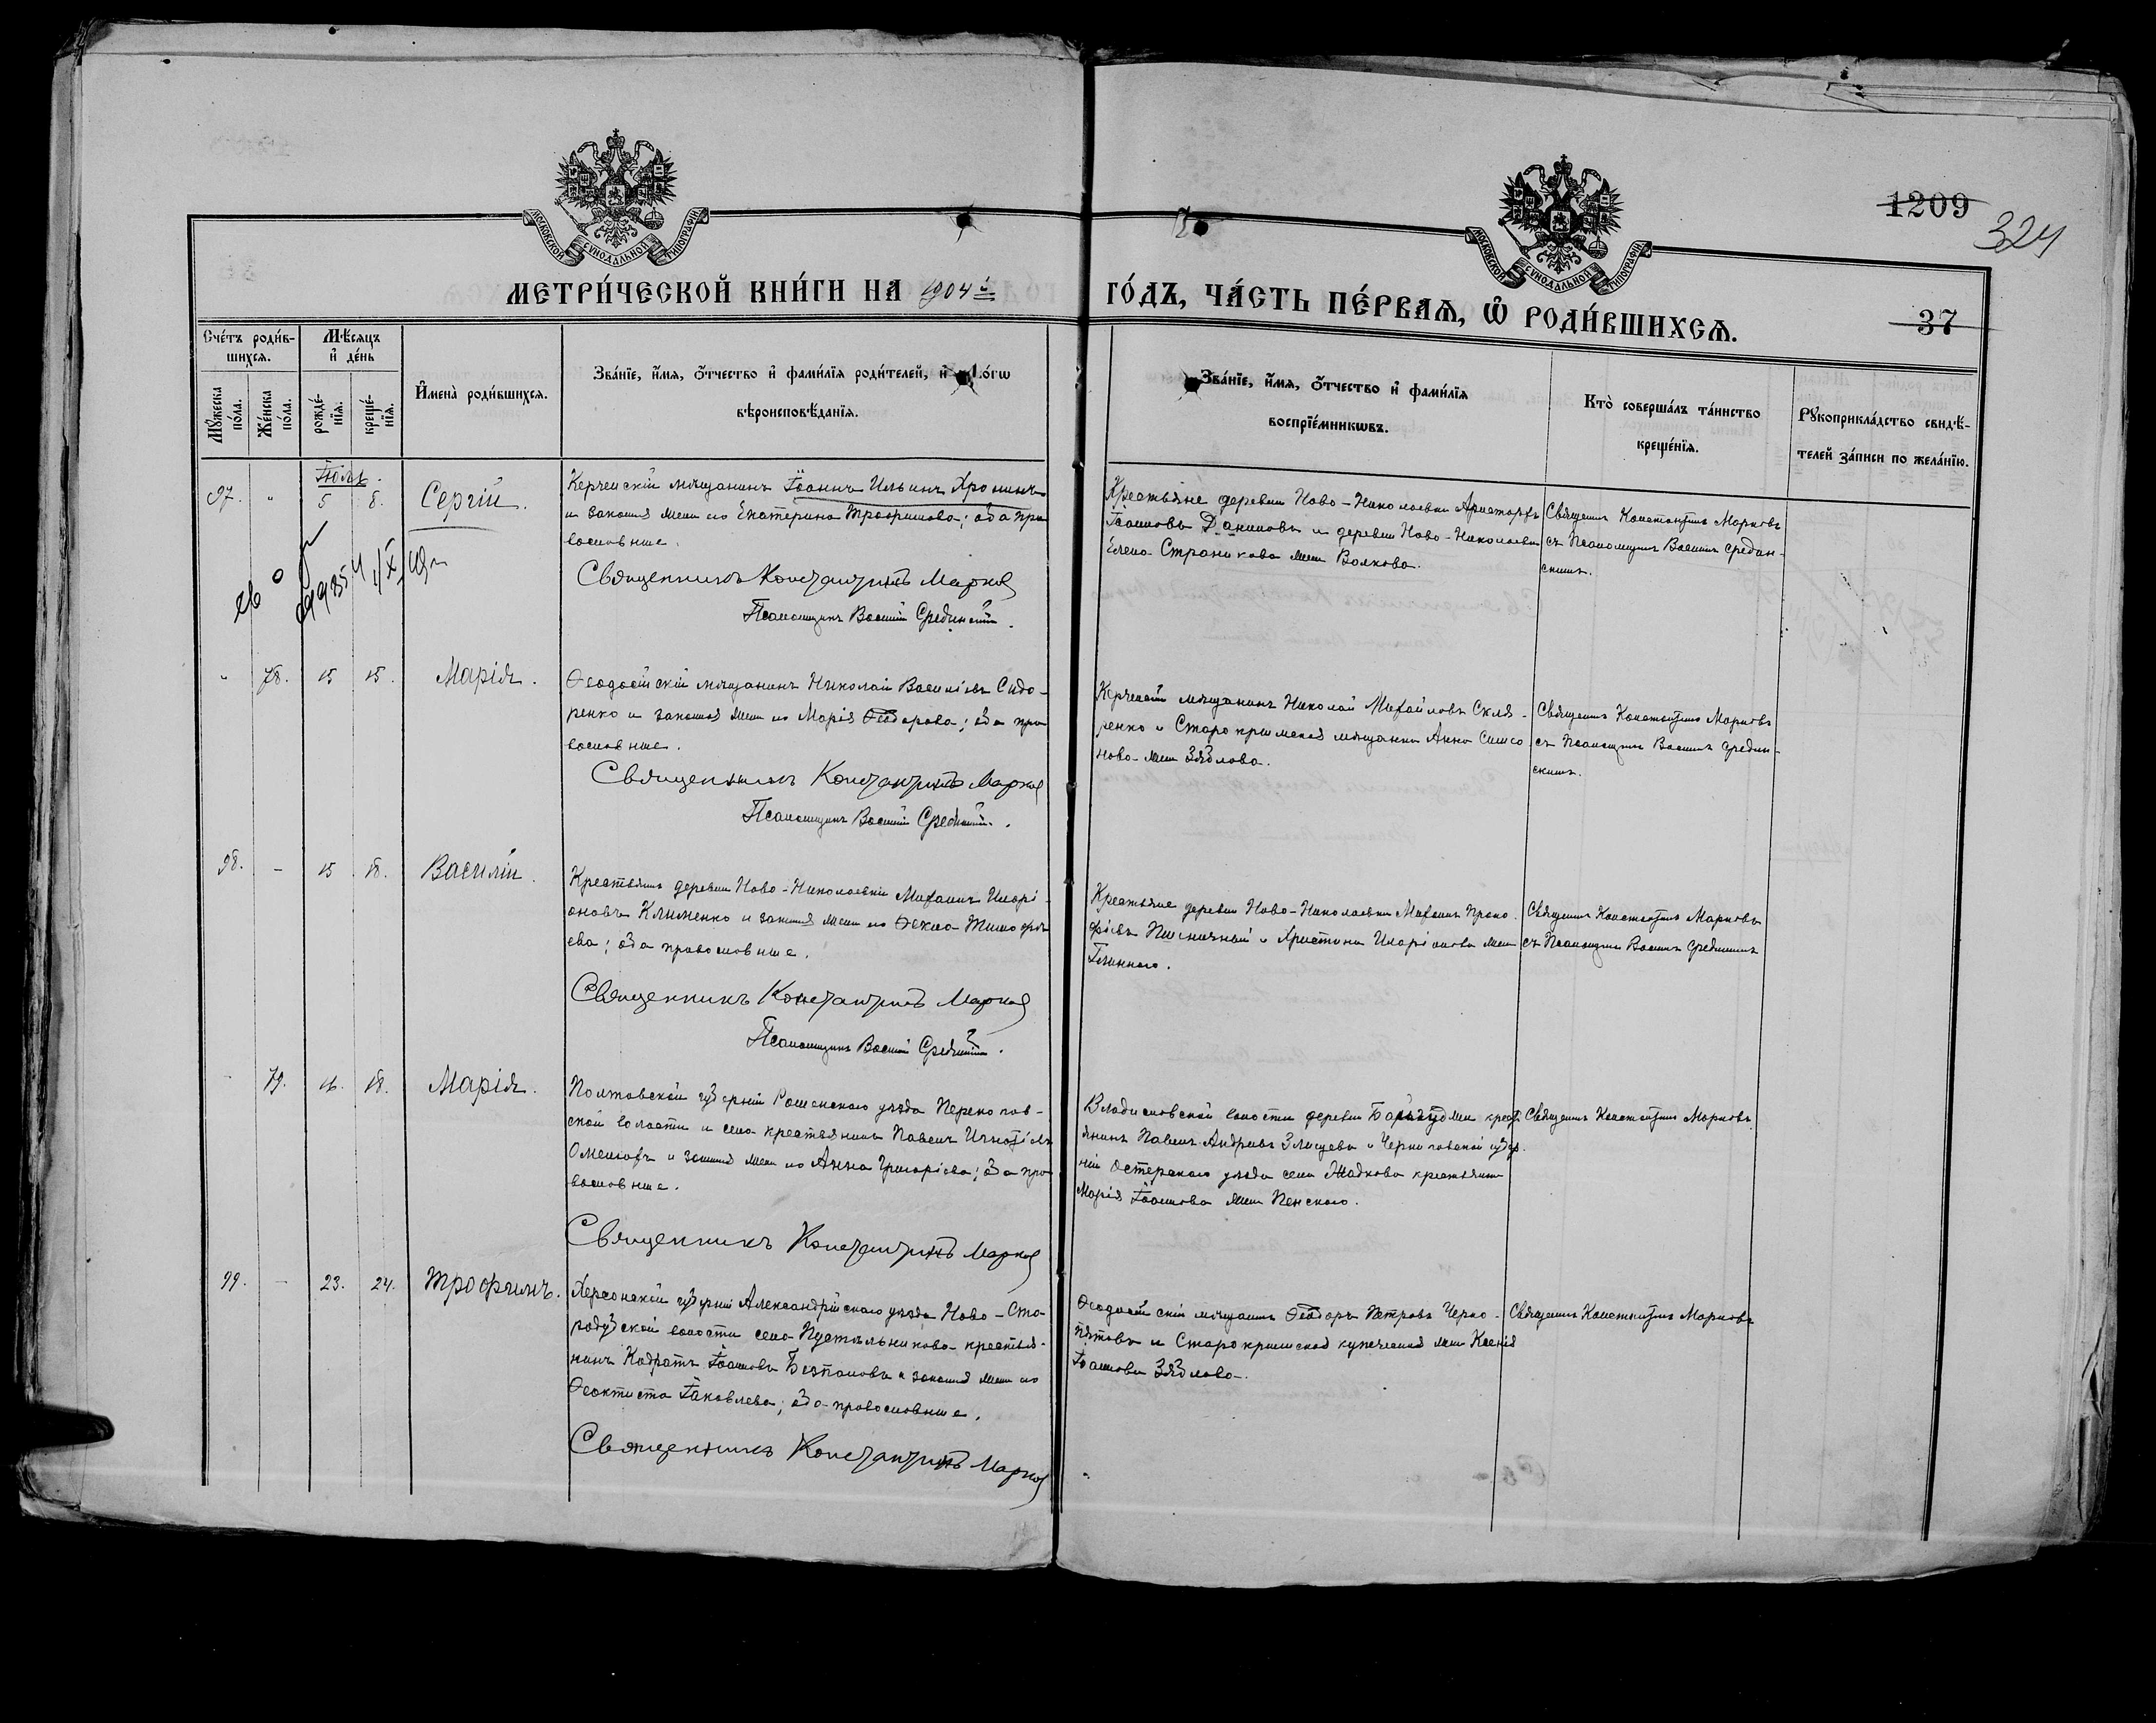 1209
324
МОСКОВСКОЙ СѴНОДАЛЬНОЙ ТИПОГРАФІИ
МОСКОВСКОЙ СѴНОДАЛЬНОЙ ТИПОГРАФІИ
МЕТРИ́ЧЕСКОЙ КНИ́ГИ НА 1904й
ГО́ДЪ, ЧА́СТЬ ПЕ́РВАѦ, Ѽ РОДИ́ВШИХСѦ.
37
Сче́тъ роди́в-
шихся.
Мѣ́сяцъ
и҆ де́нь
Мꙋ́жеска по́ла.
Же́нска по́ла.
рожде́-
нїѧ.
креще́-
нїѧ.
И҆мена̀ роди́вшихся.
Зва́нїе, и҆́мя, ѻ҆́тчество и҆ фами́лїя роди́телей, и҆
вѣроисповѣ́данїя.
Зва́нїе, и҆́мя, ѻ҆́тчество и҆ фами́лїя
воспрїе́мникѡвъ.
Кто̀ соверша́лъ та́инство
креще́нїя.
Рꙋкоприкла́дство свидѣ́-
телей за́писи по жела́нїю.
Іюль.
97. " 5 8. Сергій.
Керченскій мѣщанинъ Іоаннъ Ильинъ Хронинъ
и законная жена его Екатерина Трофимова; оба пра
вославные.
Священникъ Константинъ Марков
Псаломщикъ Василій Срединскій.
Крестьяне деревни Ново-Николаевки Аристархъ
Іоанновъ Даниловъ и деревни Ново-Николаевки
Елена Странкова жена Волкова.
Священникъ Константинъ Марковъ
съ Псаломщикомъ Василіемъ Средин-
скимъ.
" 78. 15 15. Марія.
Ѳеодосійскій мѣщанинъ Николай Васильевъ Сидо-
ренко и законная жена его Марія Ѳеодорова; оба пра
вославные.
Священникъ Константинъ Марков
Псаломщикъ Василій Срединскій.
Керченскій мѣщанинъ Николай Михайловъ Скля-
ренко и Старокрымская мѣщанка Анна Симео
нова жена Зяблова.
Священникъ Константинъ Марковъ
съ Псаломщикомъ Василіемъ Средин-
скимъ.
98. - 15 18. Василій.
Крестьянинъ деревни Ново-Николаевки Михаилъ Иларі-
оновъ Клименко и законная жена его Ѳекла Тимоѳе
ева; оба православные.
Священникъ Константинъ Марков
Псаломщикъ Василій Срединскій.
Крестьяне деревни Ново-Николаевки Михаилъ Проко-
фіевъ Пшеничный и Христина Иларіонова жена
Священникъ Константинъ Марковъ
съ Псаломщикомъ Василіемъ Срединскимъ
- 79. 16. 18. Марія.
Полтавской губерніи Роменскаго уѣзда Перекопов-
ской волости и села крестьянинъ Павелъ Игнатіевъ
и законная жена его Анна Григоріева; оба пра
вославные.
Священникъ Константинъ Марков
Владиславской волости деревни крест
янинъ Павелъ Андреевъ и Черниговской губер
ніи Остерскаго уѣзда села Жадкова крестьянина
Марія Іоаннова жена Пенскаго.
Священникъ Константинъ Марковъ.
99. - 23. 24. Трофимъ.
Херсонской губерніи Александрійскаго уѣзда Ново-Ста-
родубской волости села Пустельникова крестья-
нинъ Кодратъ Іоанновъ Безпаловъ и законная жена его
Ѳеоктиста Іаковлева; оба православные.
Священникъ Константинъ Марков
Ѳеодосійскій мѣщанинъ Ѳеодоръ Петровъ Черно-
пятовъ и Старокрымская купеческая жена Ксенія
Іоаннова Зяблова.
Священникъ Константинъ Марковъ